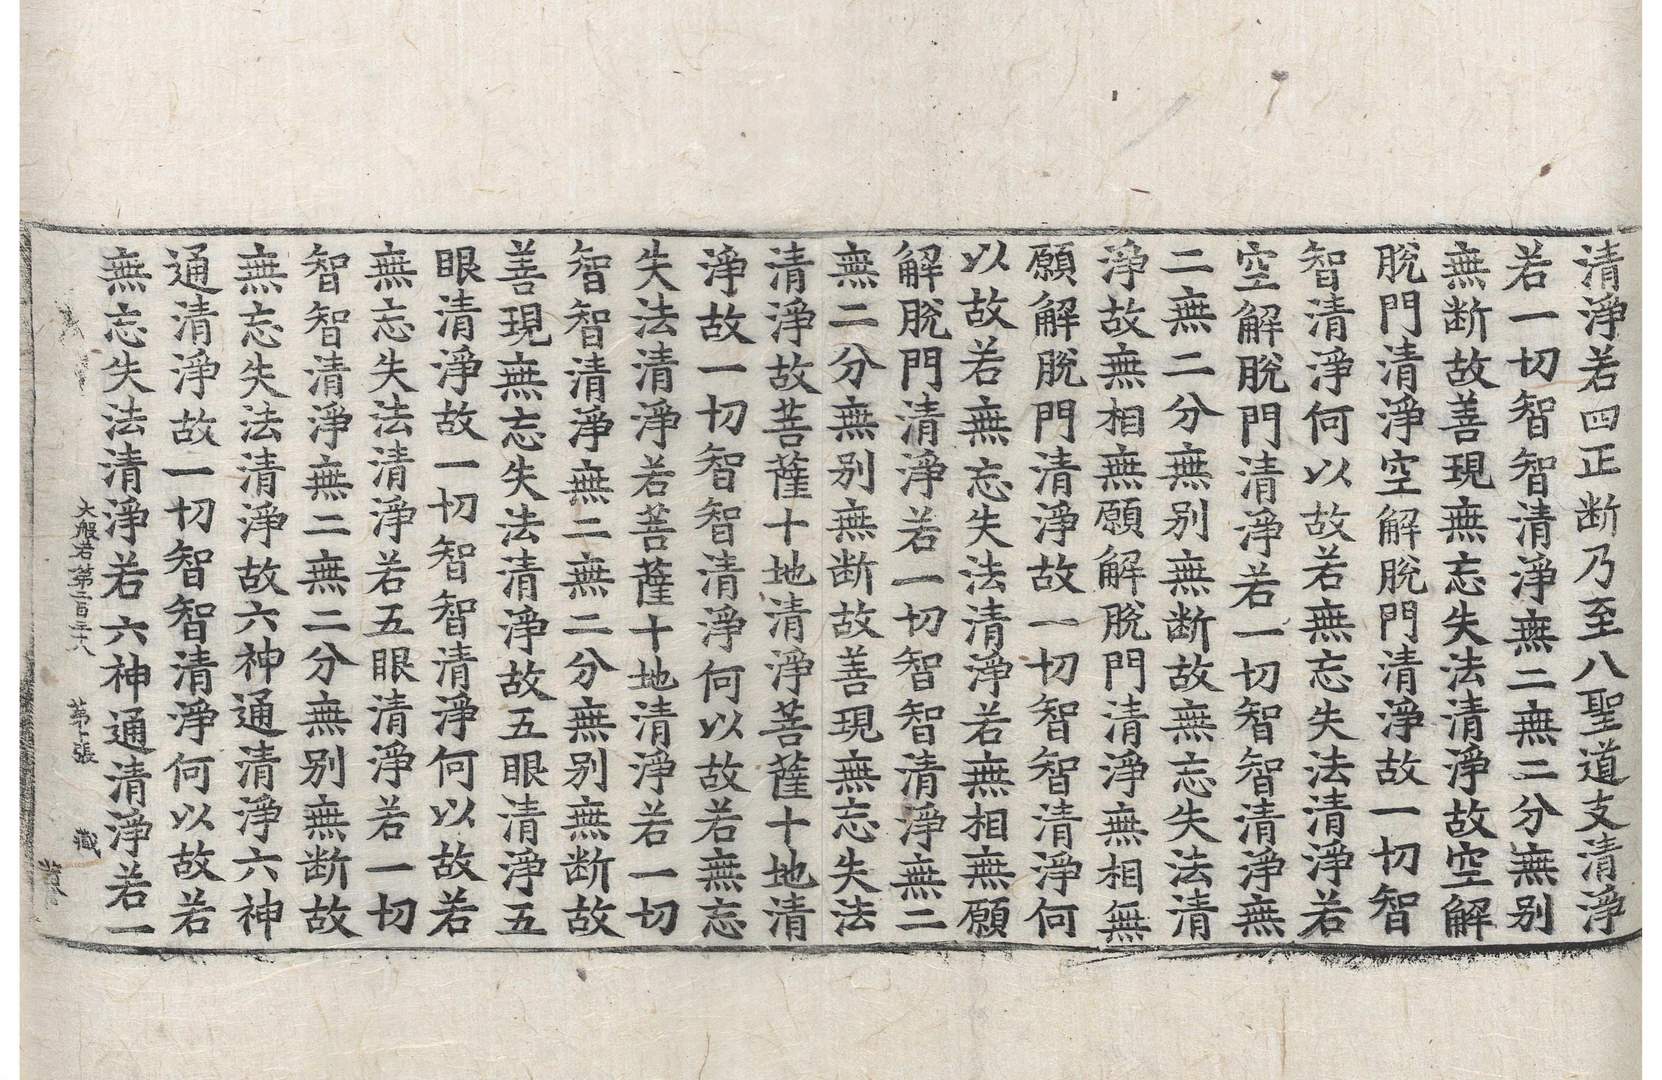 清淨若四正断乃至八聖道支清淨
若一切智智清淨無二無二分無别
無断故善現無忘失法清淨故空解
脫門清淨空解脫門清淨故一切智
智清淨何以故若無忘失法清淨若
空解脫門清淨若一切智智清淨無
二無二分無别無断故無忘失法清
淨故無相無願解脫門清淨無相無
願解脫門清淨故一切智智清淨何
以故若無忘失法清淨若無相無願
解脫門清淨若一切智智清淨無二
無二分無别無断故善現無忘失法
清淨故菩薩十地清淨菩薩十地清
淨故一切智智清淨何以故若無忘
失法清淨若菩薩十地清淨若一切
智智清淨無二無二分無别無断故
善現無忘失法清淨故五眼清淨五
眼清淨故一切智智清淨何以故若
無忘失法清淨若五眼清淨若一切
智智清淨無二無二分無别無断故
無忘失法清淨故六神通清淨六神
通清淨故一切智智清淨何以故若
無忘失法清淨若六神通清淨若一
大般若第二百三十八 第七張